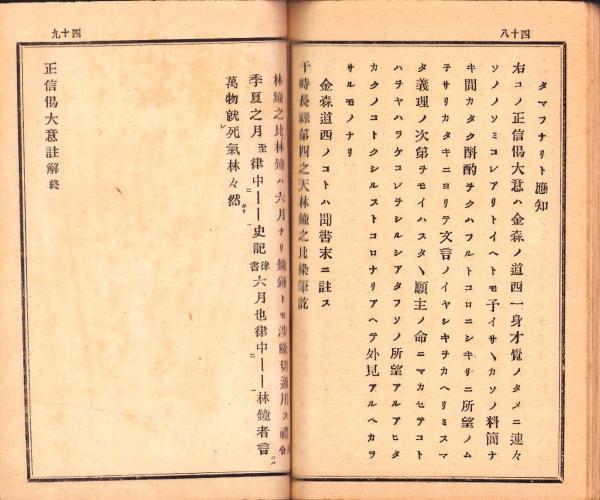 四十八
タマフナリト應知
右コノ正信偈大意ハ金森ノ道西一身才覺ノタメニ連々
ソノノソミコレアリトイヘトモ予イサヽカソノ料簡ナ
キ間カタク酙酌ヲクハフルトコロニシキリニ所望ノム
テサリカタキニヨリテ文言ノイヤシキヲカヘリミスマ
タ義理ノ次第ヲモイハスタヽ願主ノ命ニマカセテコト
ハヲヤハラケコレヲシルシアタフソノ所望アルアヒタ
カクノコトクシルストコロナリアヘテ外見アルヘカラ
サルモノナリ
金森道西ノコトハ聞書末ニ註ス
于時長祿第四之天林鐘之比染筆訖
四十九
林鐘之比林鐘ハ六月ナリ鐘鍾トモ渉陽切通用ス禮月令
季夏之月至律中――史記律書六月也律中――林鐘者言
萬物就死氣林々然
正信偈大意註解終